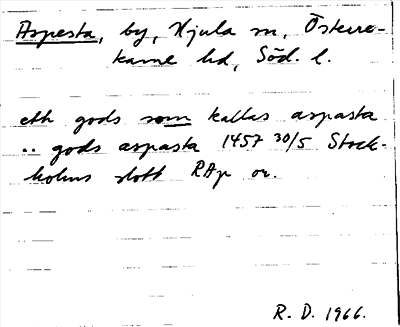 Aspesta, by, Husby m, Österre-
karne hd, Söd. l.
eth gods som kallas aspasta
.. gods aspasta 1457 30/5 Stock-
holms slott RAp or.
R. D. 1966.